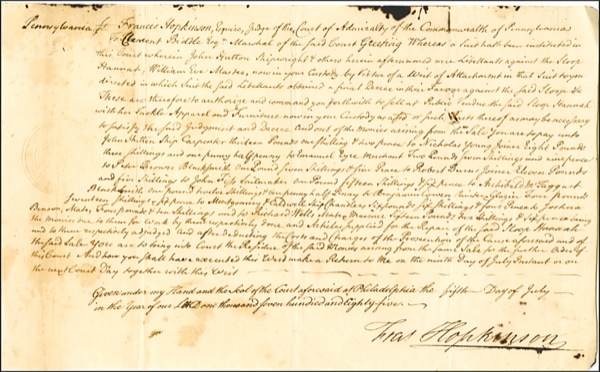 Pennsylvania ss. Francis Hopkinson, Esquire, Judge of the Court of Admiralty of the Commonwealth of Pennsylvania
To Clement Biddle Esqr Marshal of the said Court Greeting Whereas a Suit hath been instituted in
this Court wherein John Hutton Shipwright & others herein afternamed are Libellants against the Sloop
Hannah, William Eve Master, now in your Custody by Virtue of a Writ of Attachment in that Suit to you
directed in which Suit the said Libellants obtained a final Decree in their Favour against the said Sloop &c
These are therefore to authorize and command you forthwith to sell at Public Vendue the said Sloop Hannah
with her Tackle Apparel and Furniture now in your Custody as afsd or such Parts thereof as may be necessary
to satisfy the said Judgment and Decree And out of the Monies arising from the Sale you are to pay unto
John Hutton Ship Carpenter thirteen Pounds one shilling & two pence to Nicholas Young Joiner Eight Pounds
three shillings and one penny half penny to Emanuel Eyre Merchant Two Pounds seven Shillings and nine pence
to Peter Brown Blacksmith One Pound seven Shillings & five Pence to Robert Burns Joiner Eleven Pounds
and five Shillings to John Sailmaker one Pound fifteen Shillings & six pence to Archibald McTaggart
Blacksmith one pound twelve shillings & ten pence half Penny to Glazier Four pounds
Seventeen shillings & six pence to Montgomery & Caldwell Ship Chandlers Six pounds six Shillings & four Pence to Joshua
Mate, Four pounds ten shillings and to Richard Wells fifteen Pounds two Shillings & six pence being
the Monies due to them for Work by them respectively done and Articles supplied for the Repair of the said Sloop Hannah
and to them respectively adjudged and after deducting the Costs and Charges of the Prosecution of the Cause aforesaid and of
the said Sale You are to bring into Court the Residue of the said Monies arising from the same Sale for the further Order of
this Court And how you shall have executed this Writ make a Return to me on the ninth Day of July Instant or on
the next Court Day together with this Writ
Given under my Hand and the Seal of the Court aforesaid at Philadelphia the fifth Day of July
in the Year of our Lord One thousand seven hundred and Eighty five
Fras Hopkinson